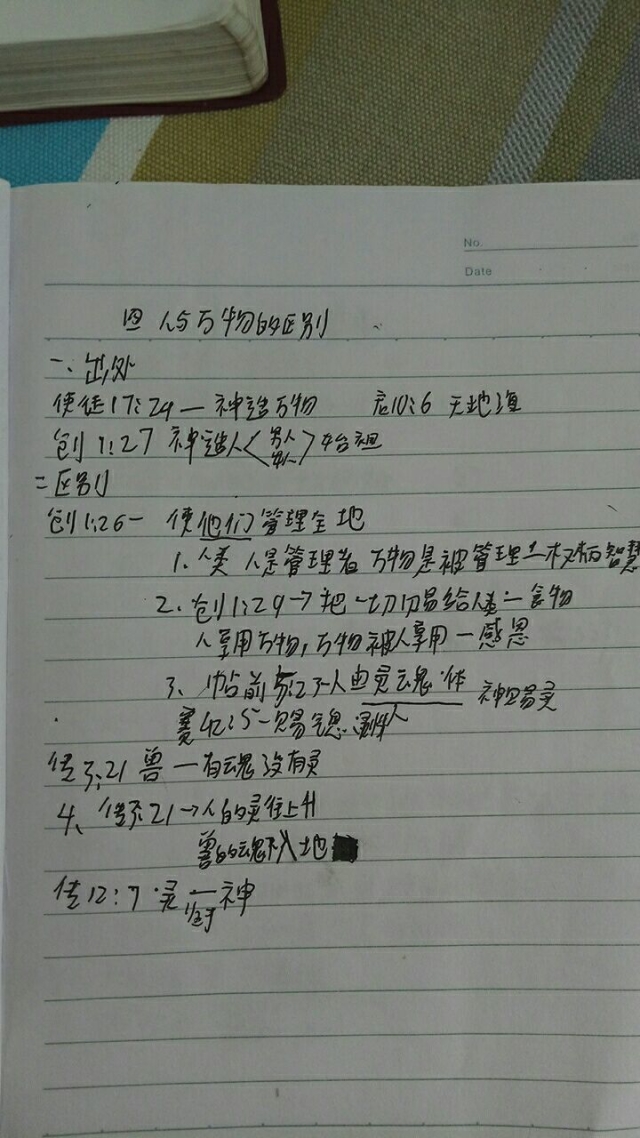 No.
Date
四 人与万物的区别
一、出处
使徒17:24—神造万物 启10:6 天地海
创1:27 神造人<男人 女人>始祖
二区别
创1:26—使他们管理全地
1. 人类 人是管理者 万物是被管理—权柄智慧
2. 创1:29→把一切切易给人类—食物
人享用万物,万物被人享用—感恩
3、帖前5:23—人由灵魂体 神赐灵
赛42:5—赐气息
传3:21 兽—有魂没有灵
4、传3:21→人的灵往上升
兽的魂下入地
传12:7灵—神